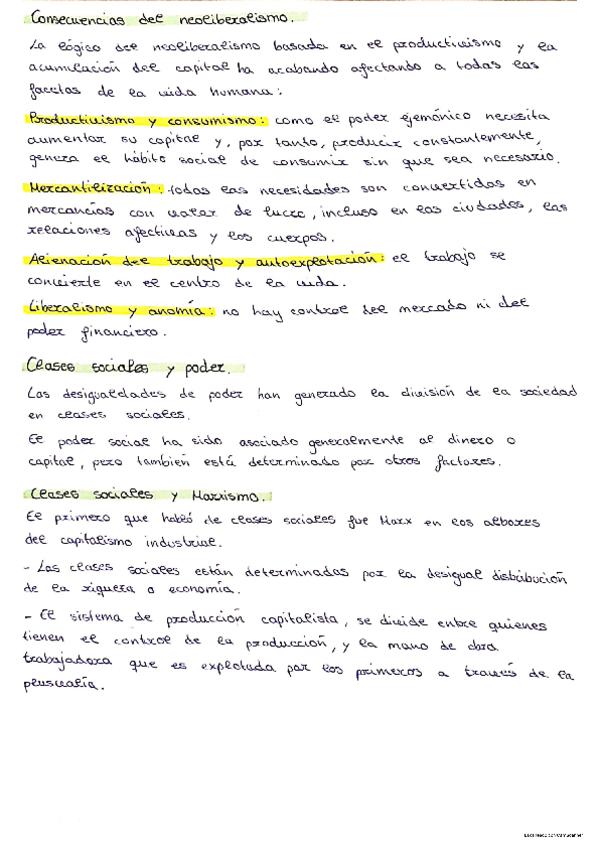 Consecuencias del neoliberalismo.
La lógica del neoliberalismo basada en el productivismo y la
acumulación del capital ha acabando afectando a todas las
facetas de la vida humana:
Productivismo y consumismo: como el poder ejemónico necesita
aumentar su capital y, por tanto, producir constantemente,
genera el hábito social de consumir sin que sea necesario.
Mercantilización: todas las necesidades son convertidas en
mercancías con valor de lucro, incluso en las ciudades, las
relaciones afectivas y los cuerpos.
Alienación del trabajo y autoexplotación: el trabajo se
convierte en el centro de la vida.
Liberalismo y anomía: no hay control del mercado ni del
poder financiero.
Clases sociales y poder.
Las desigualdades de poder han generado la división de la sociedad
en clases sociales.
El poder social ha sido asociado generalmente al dinero o
capital, pero también está determinado por otros factores.
Clases sociales y Marxismo.
El primero que habló de clases sociales fue Marx en los albores
del capitalismo industrial.
- Las clases sociales están determinadas por la desigual distribución
de la riqueza o economía.
- El sistema de producción capitalista, se divide entre quienes
tienen el control de la producción, y la mano de obra
trabajadora que es explotada por los primeros a través de la
plusvalía.